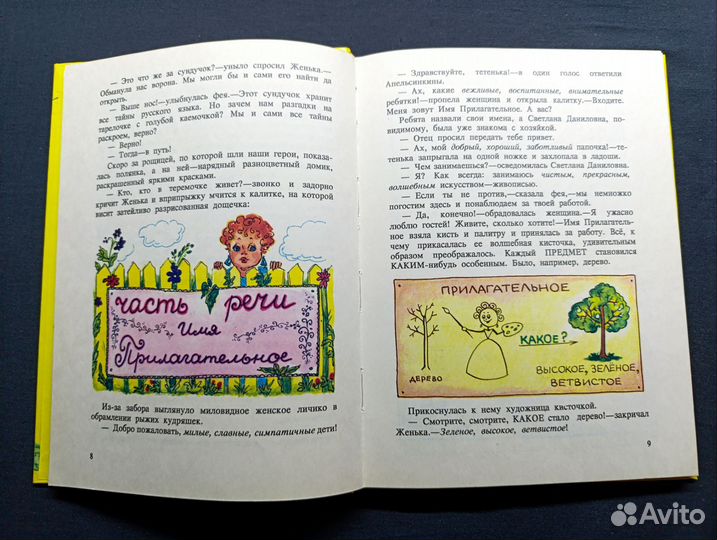 — Это что же за сундучок?—уныло спросил Женька.—
Обманула нас ворона. Мы могли бы и сами его найти да
открыть.
— Выше нос!—улыбнулась фея.—Этот сундучок хранит
все тайны русского языка. Но зачем нам разгадки на
тарелочке с голубой каемочкой? Мы и сами все тайны
раскроем, верно?
— Верно!
— Тогда—в путь!
Скоро за рощицей, по которой шли наши герои, показа-
лась полянка, а на ней—нарядный разноцветный домик,
раскрашенный яркими красками.
— Кто, кто в теремочке живет?—звонко и задорно
кричит Женька и вприпрыжку мчится к калитке, на которой
висит затейливо разрисованная дощечка:
часть речи
Имя
Прилагательное
Из-за забора выглянуло миловидное женское личико в
обрамлении рыжих кудряшек.
— Добро пожаловать, милые, славные, симпатичные дети!
8
— Здравствуйте, тетенька!—в один голос ответили
Апельсинкины.
— Ах, какие вежливые, воспитанные, внимательные
ребятки!—пропела женщина и открыла калитку.—Входите.
Меня зовут Имя Прилагательное. А вас?
Ребята назвали свои имена, а Светлана Даниловна, по-
видимому, была уже знакома с хозяйкой.
— Отец просил передать тебе привет.
— Ах, мой добрый, хороший, заботливый папочка!—те-
тенька запрыгала на одной ножке и захлопала в ладоши.
— Чем занимаешься?—осведомилась Светлана Даниловна.
— Я? Как всегда: занимаюсь чистым, прекрасным,
волшебным искусством—живописью.
— Если ты не против,—сказала фея,—мы немножко
погостим здесь и понаблюдаем за твоей работой.
— Да, конечно!—обрадовалась женщина.—Я ужасно
люблю гостей! Живите, сколько хотите!—Имя Прилагатель-
ное взяла кисть и палитру и принялась за работу. Всё, к
чему прикасалась ее волшебная кисточка, удивительным
образом преображалось. Каждый ПРЕДМЕТ становился
КАКИМ-нибудь особенным. Было, например, дерево.
ПРИЛАГАТЕЛЬНОЕ
КАКОЕ?
ДЕРЕВО
ВЫСОКОЕ, ЗЕЛЁНОЕ,
ВЕТВИСТОЕ
Прикоснулась к нему художница кисточкой.
— Смотрите, смотрите, КАКОЕ стало дерево!—закричал
Женька.—Зеленое, высокое, ветвистое!
9
Avito